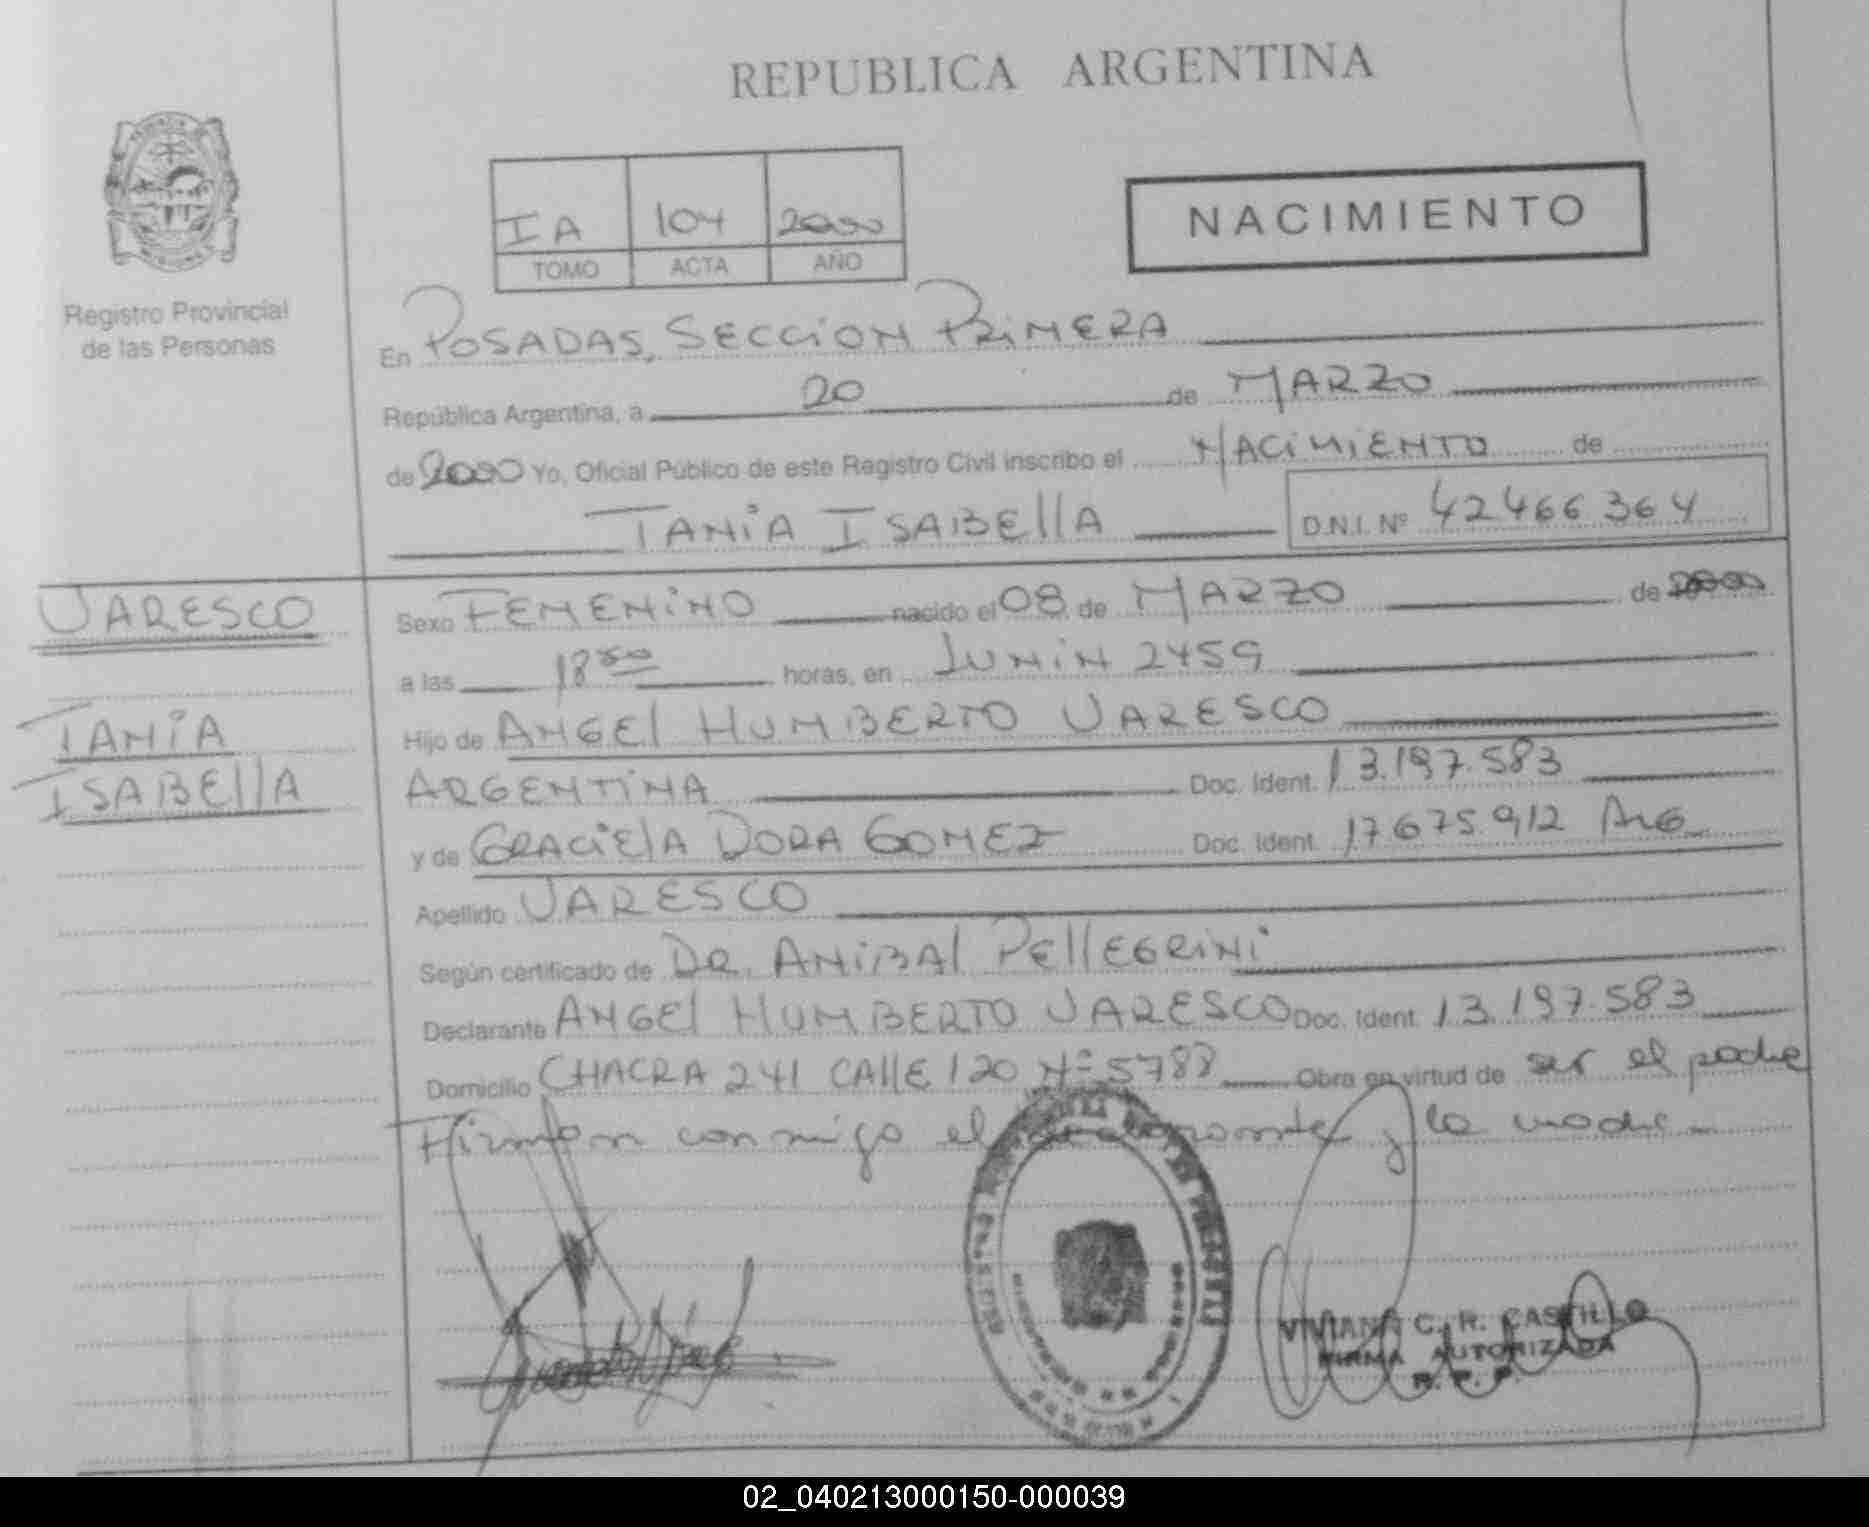 REPUBLICA ARGENTINA
IA 104 2000
TOMO ACTA AÑO
NACIMIENTO
Registro Provincial
de las Personas
En POSADAS, SECCION PRIMERA
República Argentina, a 20 de MARZO
de 2000 Yo, Oficial Público de este Registro Civil inscribo el NACIMIENTO de
TANIA ISABEllA D.N.I. Nº 42466364
VARESCO
TANIA
ISABEllA
Sexo FEMENINO nacido el 08 de MARZO de 2000
a las 18 50 horas, en JUNIN 2459
Hijo de ANGEl HUMBERTO VARESCO
ARGENTINA Doc. Ident. 13.197.583
y de GRACIElA DORA GOMEZ Doc. Ident. 17.675.912 ARG
Apellido VARESCO
Según certificado de DR. ANIBAl PEllEGRINI
Declarante ANGEl HUMBERTO VARESCO Doc. Ident. 13.197.583
Domicilio CHACRA 241 CAllE 120 Nº 5788 Obra en virtud de ser el padre
Firman conmigo el y la madre
VIVIANA C. R. CASTILLO
FIRMA AUTORIZADA
R. P. P.
02_040213000150-000039